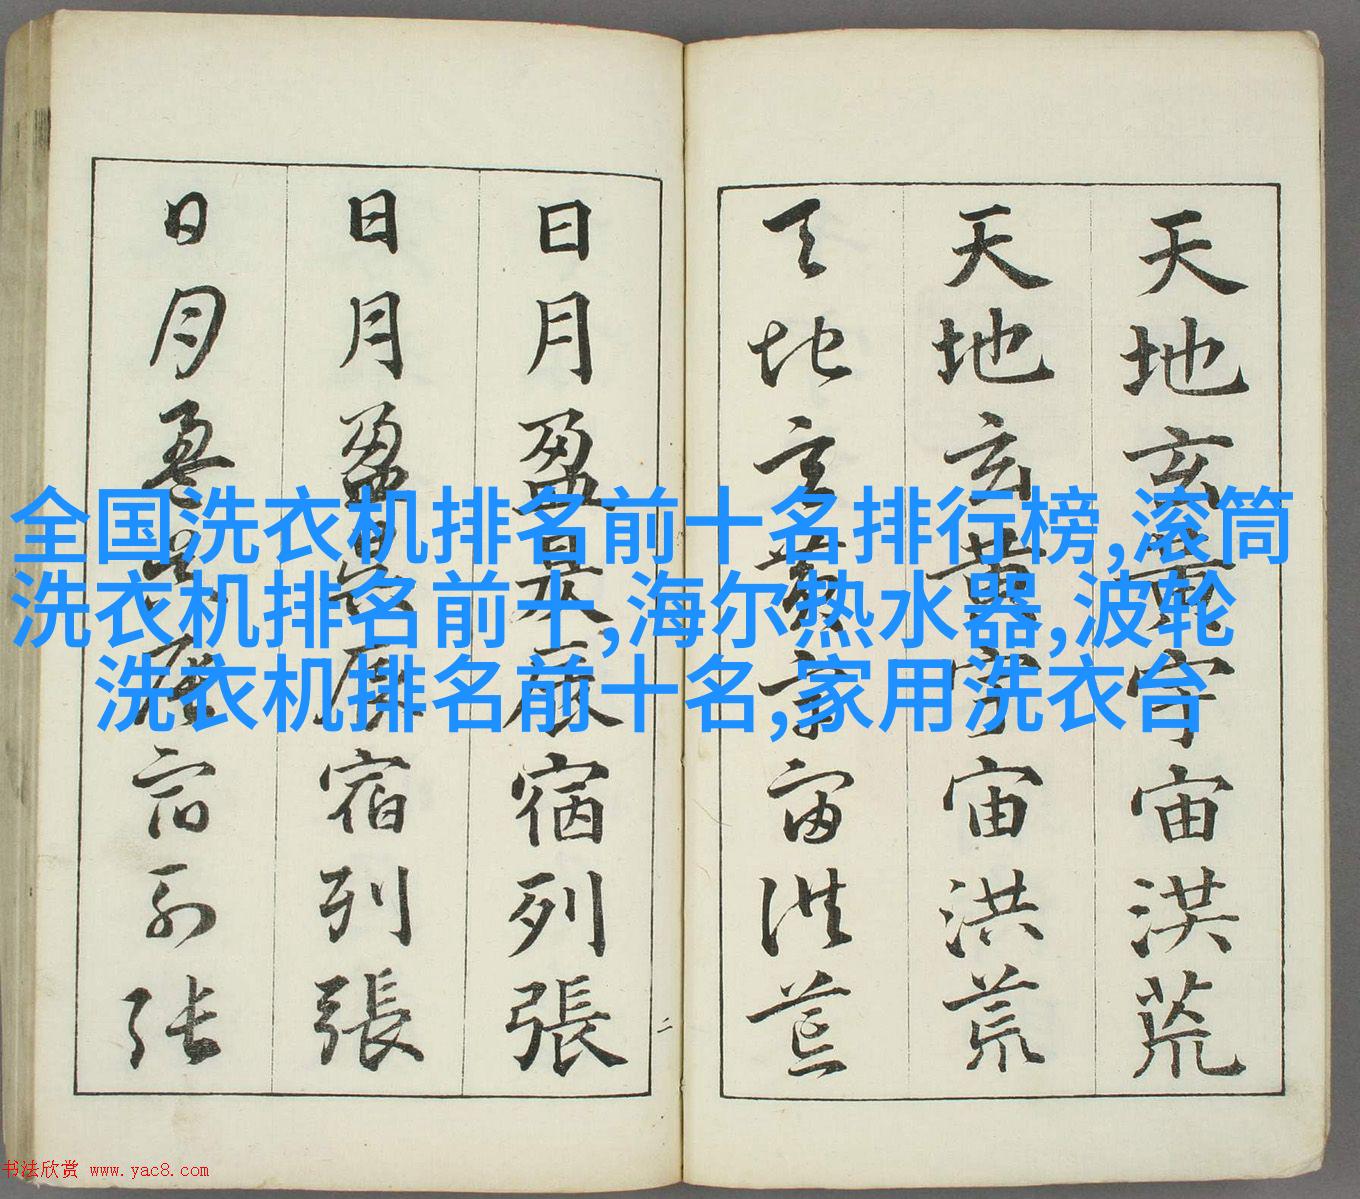 天地玄黃宇宙洪荒
天地玄黃宇宙洪荒
天地玄黃宇宙洪荒
二
日月盈昃辰宿列張
日月盈昃辰宿列張
日月盈昃辰宿列張
全国洗衣机排名前十名排行榜,滚筒
洗衣机排名前十,海尔热水器,波轮
洗衣机排名前十名,家用洗衣台
书法欣赏 www.yac8.com